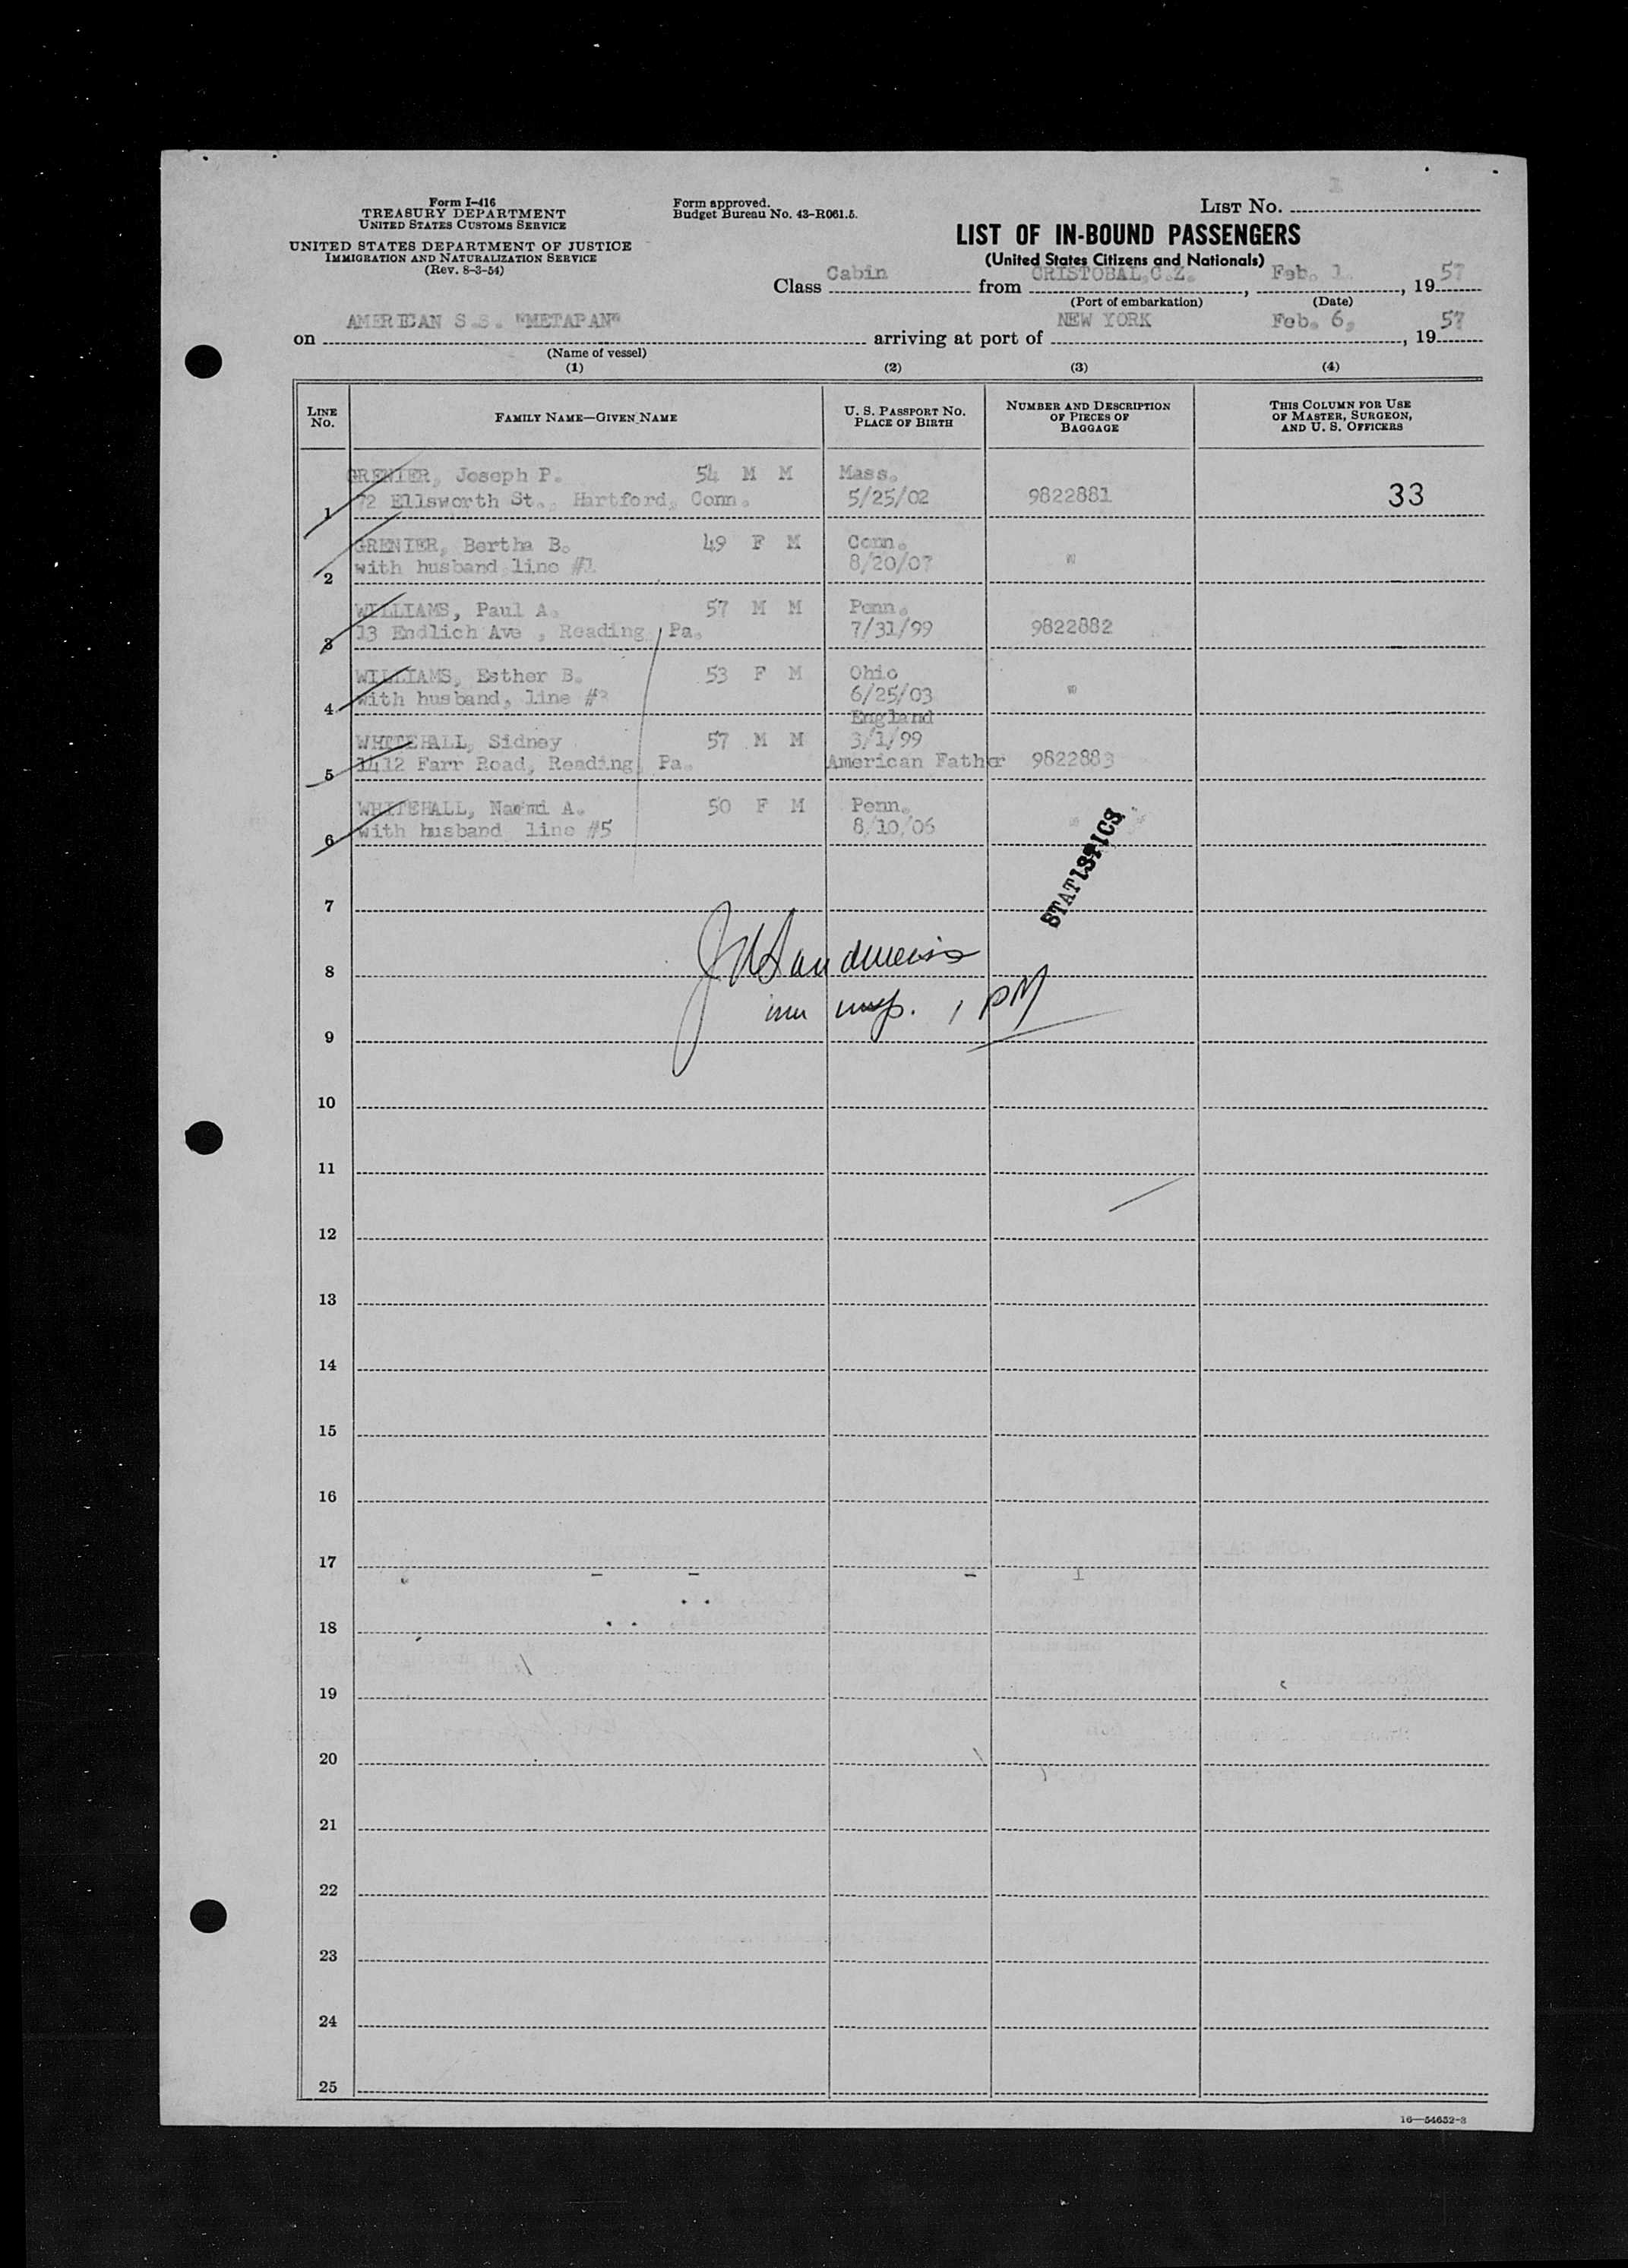 1
Form I-416
TREASURY DEPARTMENT
UNITED STATES CUSTOMS SERVICE
UNITED STATES DEPARTMENT OF JUSTICE
IMMIGRATION AND NATURALIZATION SERVICE
(Rev. 8-3-54)
Form approved.
Budget Bureau No. 43-R061.5.
LIST No.
LIST OF IN-BOUND PASSENGERS
(United States Citizens and Nationals)
Class Cabin from CRISTOBAL, C.Z., Feb. 1, 1957
(Port of embarkation) (Date)
on AMERICAN S.S. "METAPAN" arriving at port of NEW YORK Feb. 6, 1957
(Name of vessel)
(1) (2) (3) (4)
LINE No. FAMILY NAME—GIVEN NAME U. S. PASSPORT No. PLACE OF BIRTH NUMBER AND DESCRIPTION OF PIECES OF BAGGAGE THIS COLUMN FOR USE OF MASTER, SURGEON, AND U. S. OFFICERS
GRENIER, Joseph P. 54 M M Mass.
1 72 Ellsworth St., Hartford, Conn. 5/25/02 9822881 33
GRENIER, Bertha B. 49 F M Conn.
2 with husband line #1 8/20/07 "
WILLIAMS, Paul A. 57 M M Penn.
3 13 Endlich Ave , Reading, Pa. 7/31/99 9822882
WILLIAMS, Esther B. 53 F M Ohio
4 with husband, line #3 6/25/03 "
England
WHITEHALL, Sidney 57 M M 3/1/99
5 1412 Farr Road, Reading, Pa. American Father 9822883
WHITEHALL, Naomi A. 50 F M Penn.
6 with husband line #5 8/10/06 "
STATISTICS
7
8
imm insp. 1 PM
9
10
11
12
13
14
15
16
17
18
19
20
21
22
23
24
25
16—54652-3